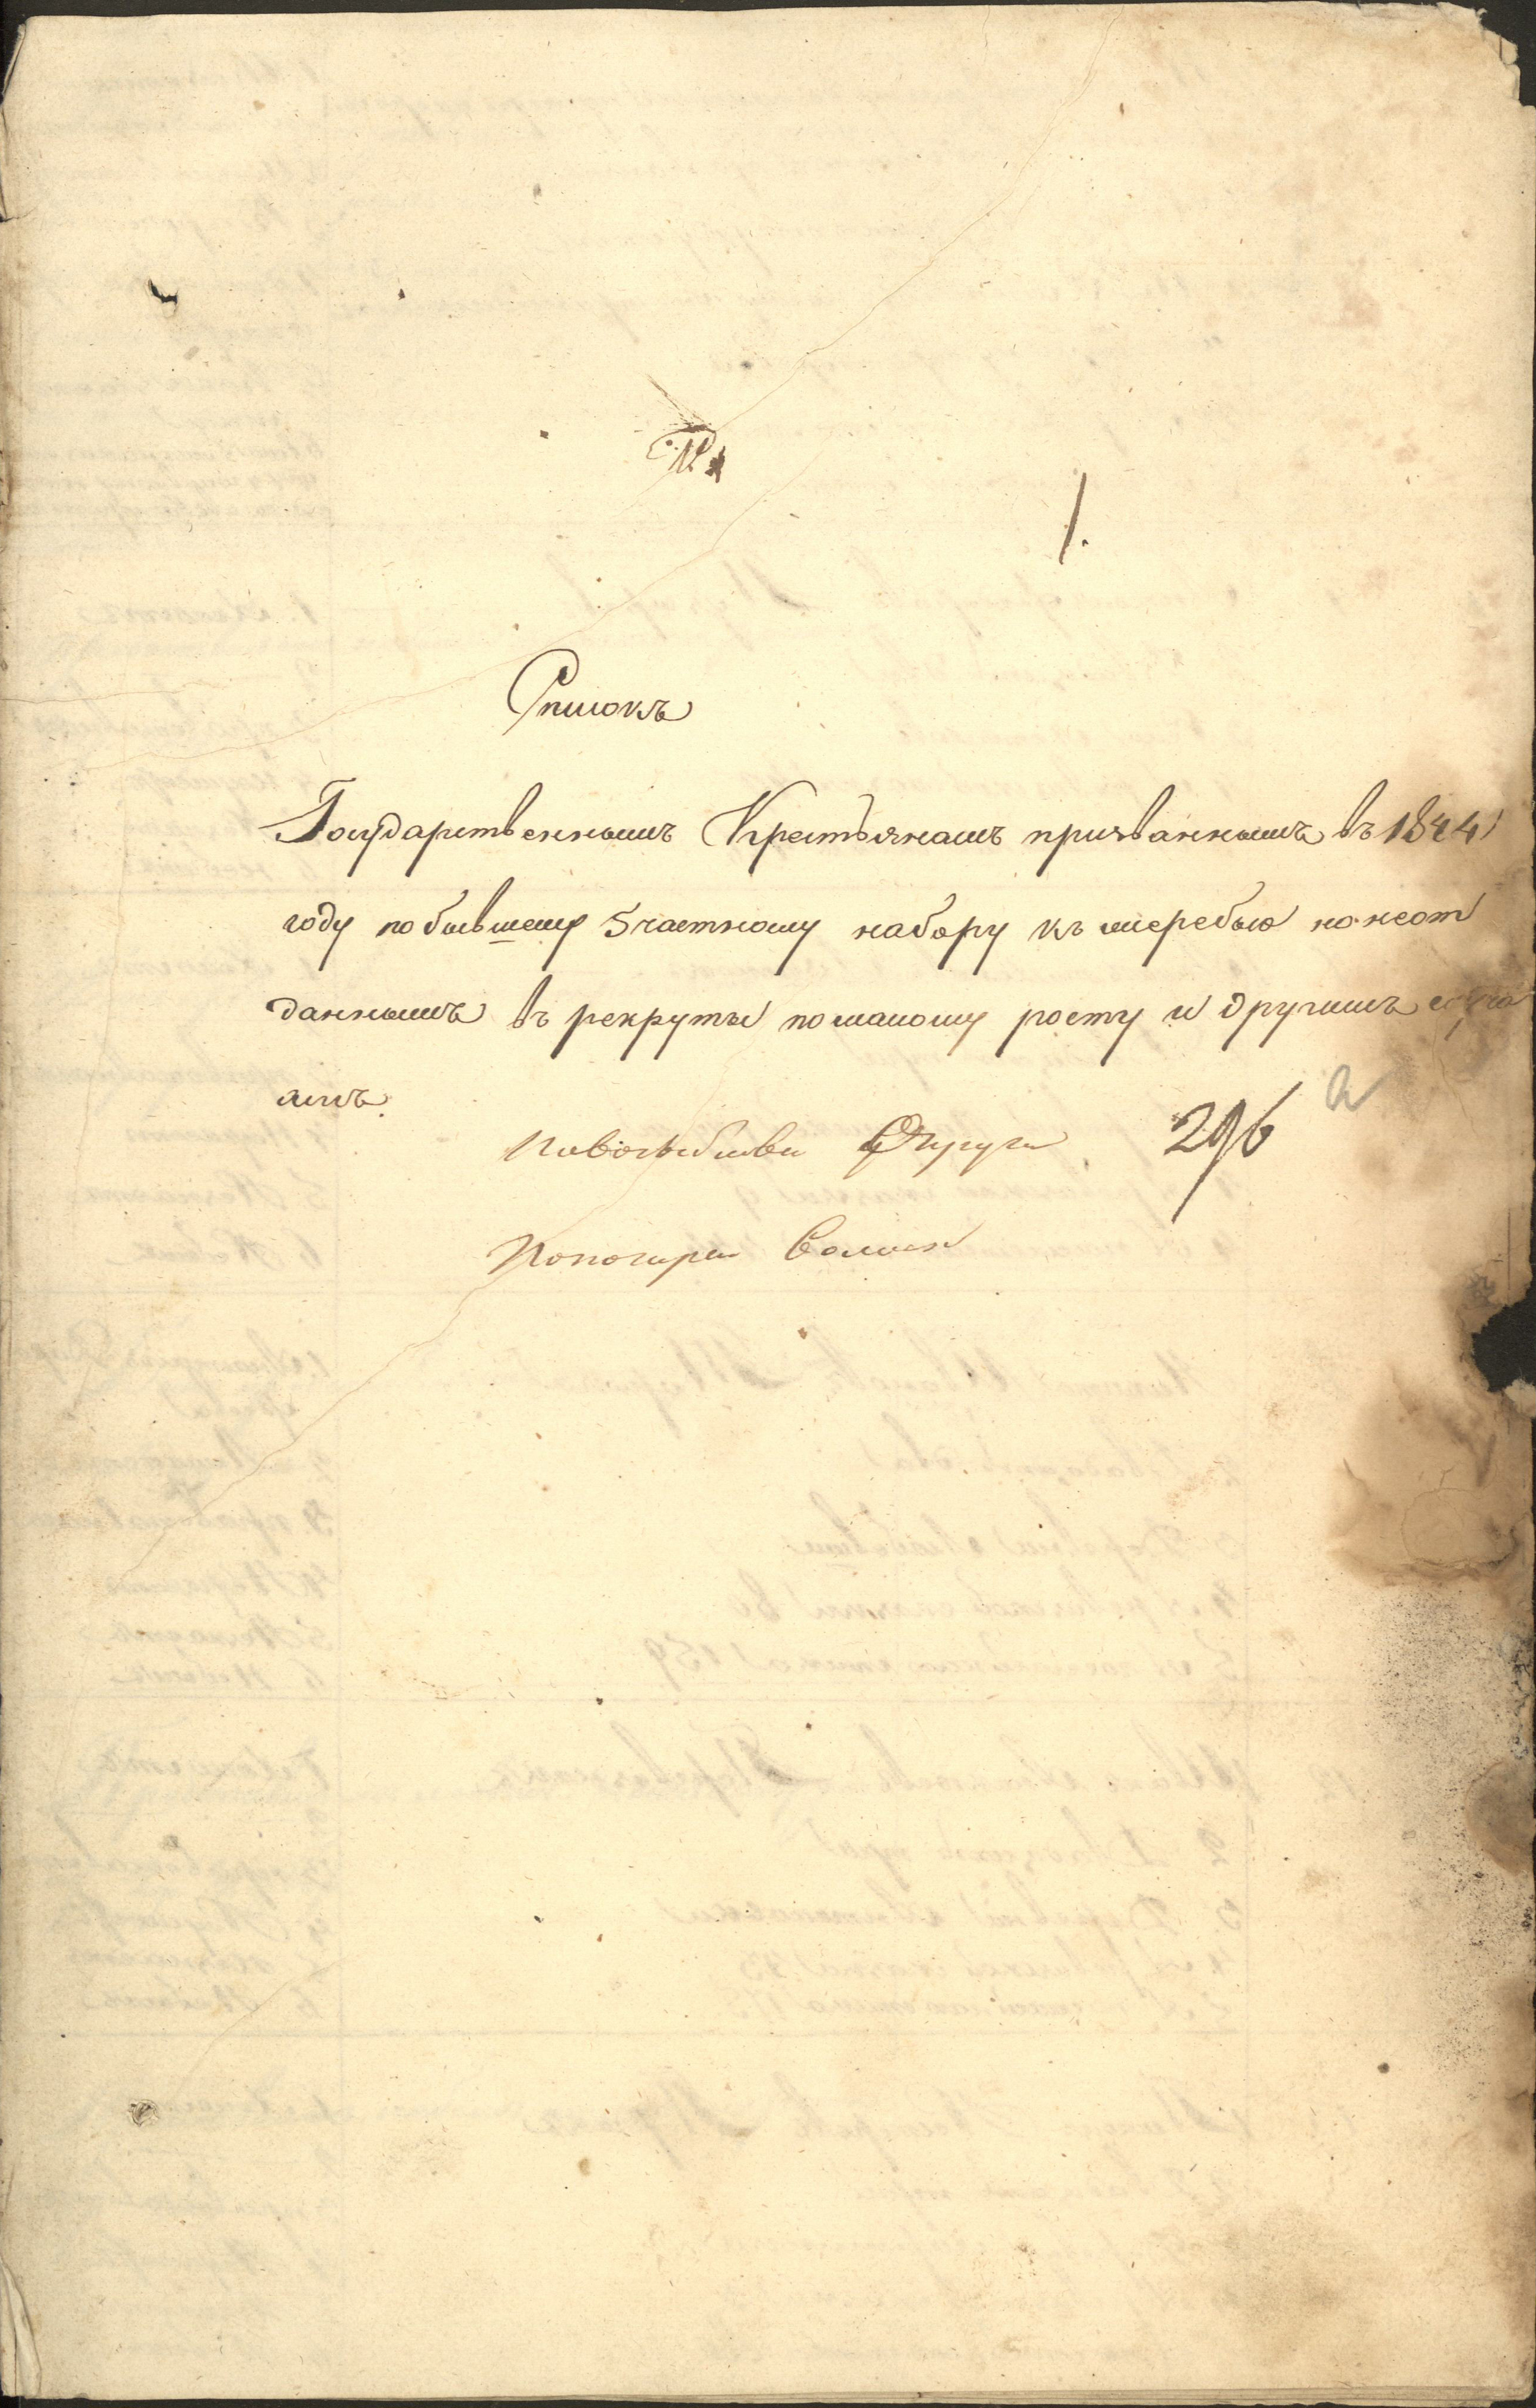 1.
Списокъ
Государственнымъ Крестьянамъ призваннымъ въ 1844
году по бывшему 5 частному набору къ жеребью но неот
даннымъ въ рекруты по малому росту и другимъ случа
ямъ.
Новозыбков Округа
296
Попогорск Волост